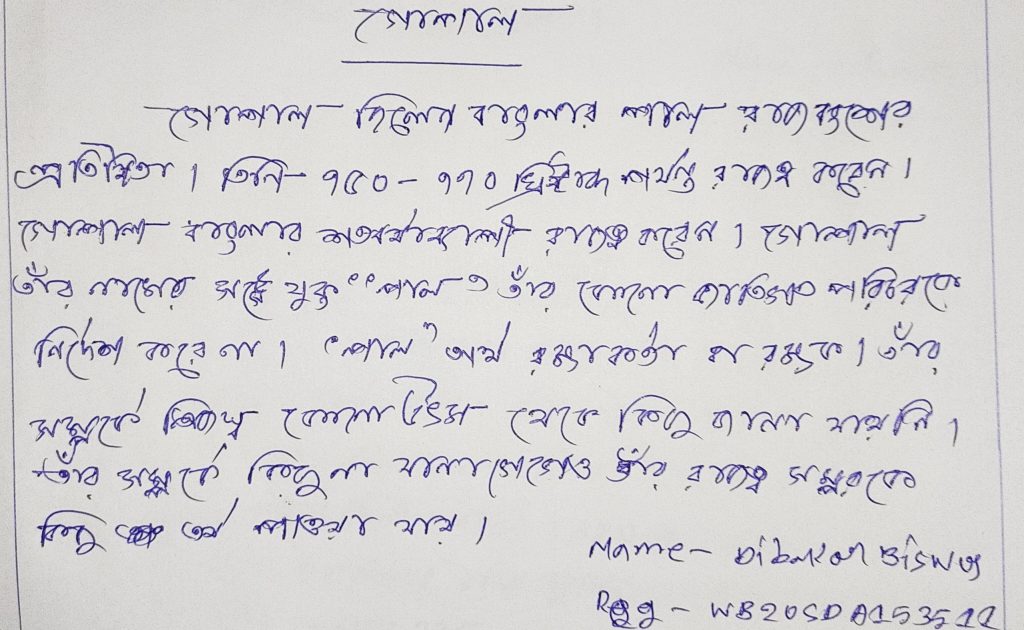 গোপাল
গোপাল ছিলেন বাংলার পাল রাজবংশের
প্রতিষ্ঠিতা। তিনি ৭৫০ - ৭৭০ খ্রিষ্টাব্দ পর্যন্ত রাজত্ব করেন।
গোপাল বাংলার রাজত্ব করেন। গোপাল
তাঁর নামের সঙ্গে যুক্ত "পাল" তাঁর কোনো জাতিগত পরিচয়কে
নির্দেশ করে না। "পাল" অর্থ রক্ষাকর্তা বা রক্ষক। তাঁর
সম্পর্কে কোনো উৎস থেকে কিছু জানা যায়নি।
তাঁর সম্পর্কে কিছু না জানাগেলেও তাঁর রাজত্ব সম্পর্কে
কিছু তথ্য পাওয়া যায়।
Name - Dibakar Biswas
Reg - WB20SDA153512